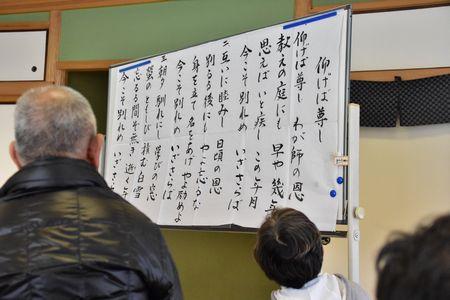 仰げば尊し
仰げば尊し わが師の恩
教えの庭にも 早や幾年
思えば いと疾し この年月
今こそ別れめ いざさらば
二 互いに睦みし 日頃の恩
別るる後にも やよ忘るな
身を立て 名をあげ やよ励めよ
今こそ別れめ いざさらば
三 朝夕馴れにし 学びの窓
蛍のともしび 積む白雪
忘るる間ぞ無き 逝く年
今こそ別れめ いざさ